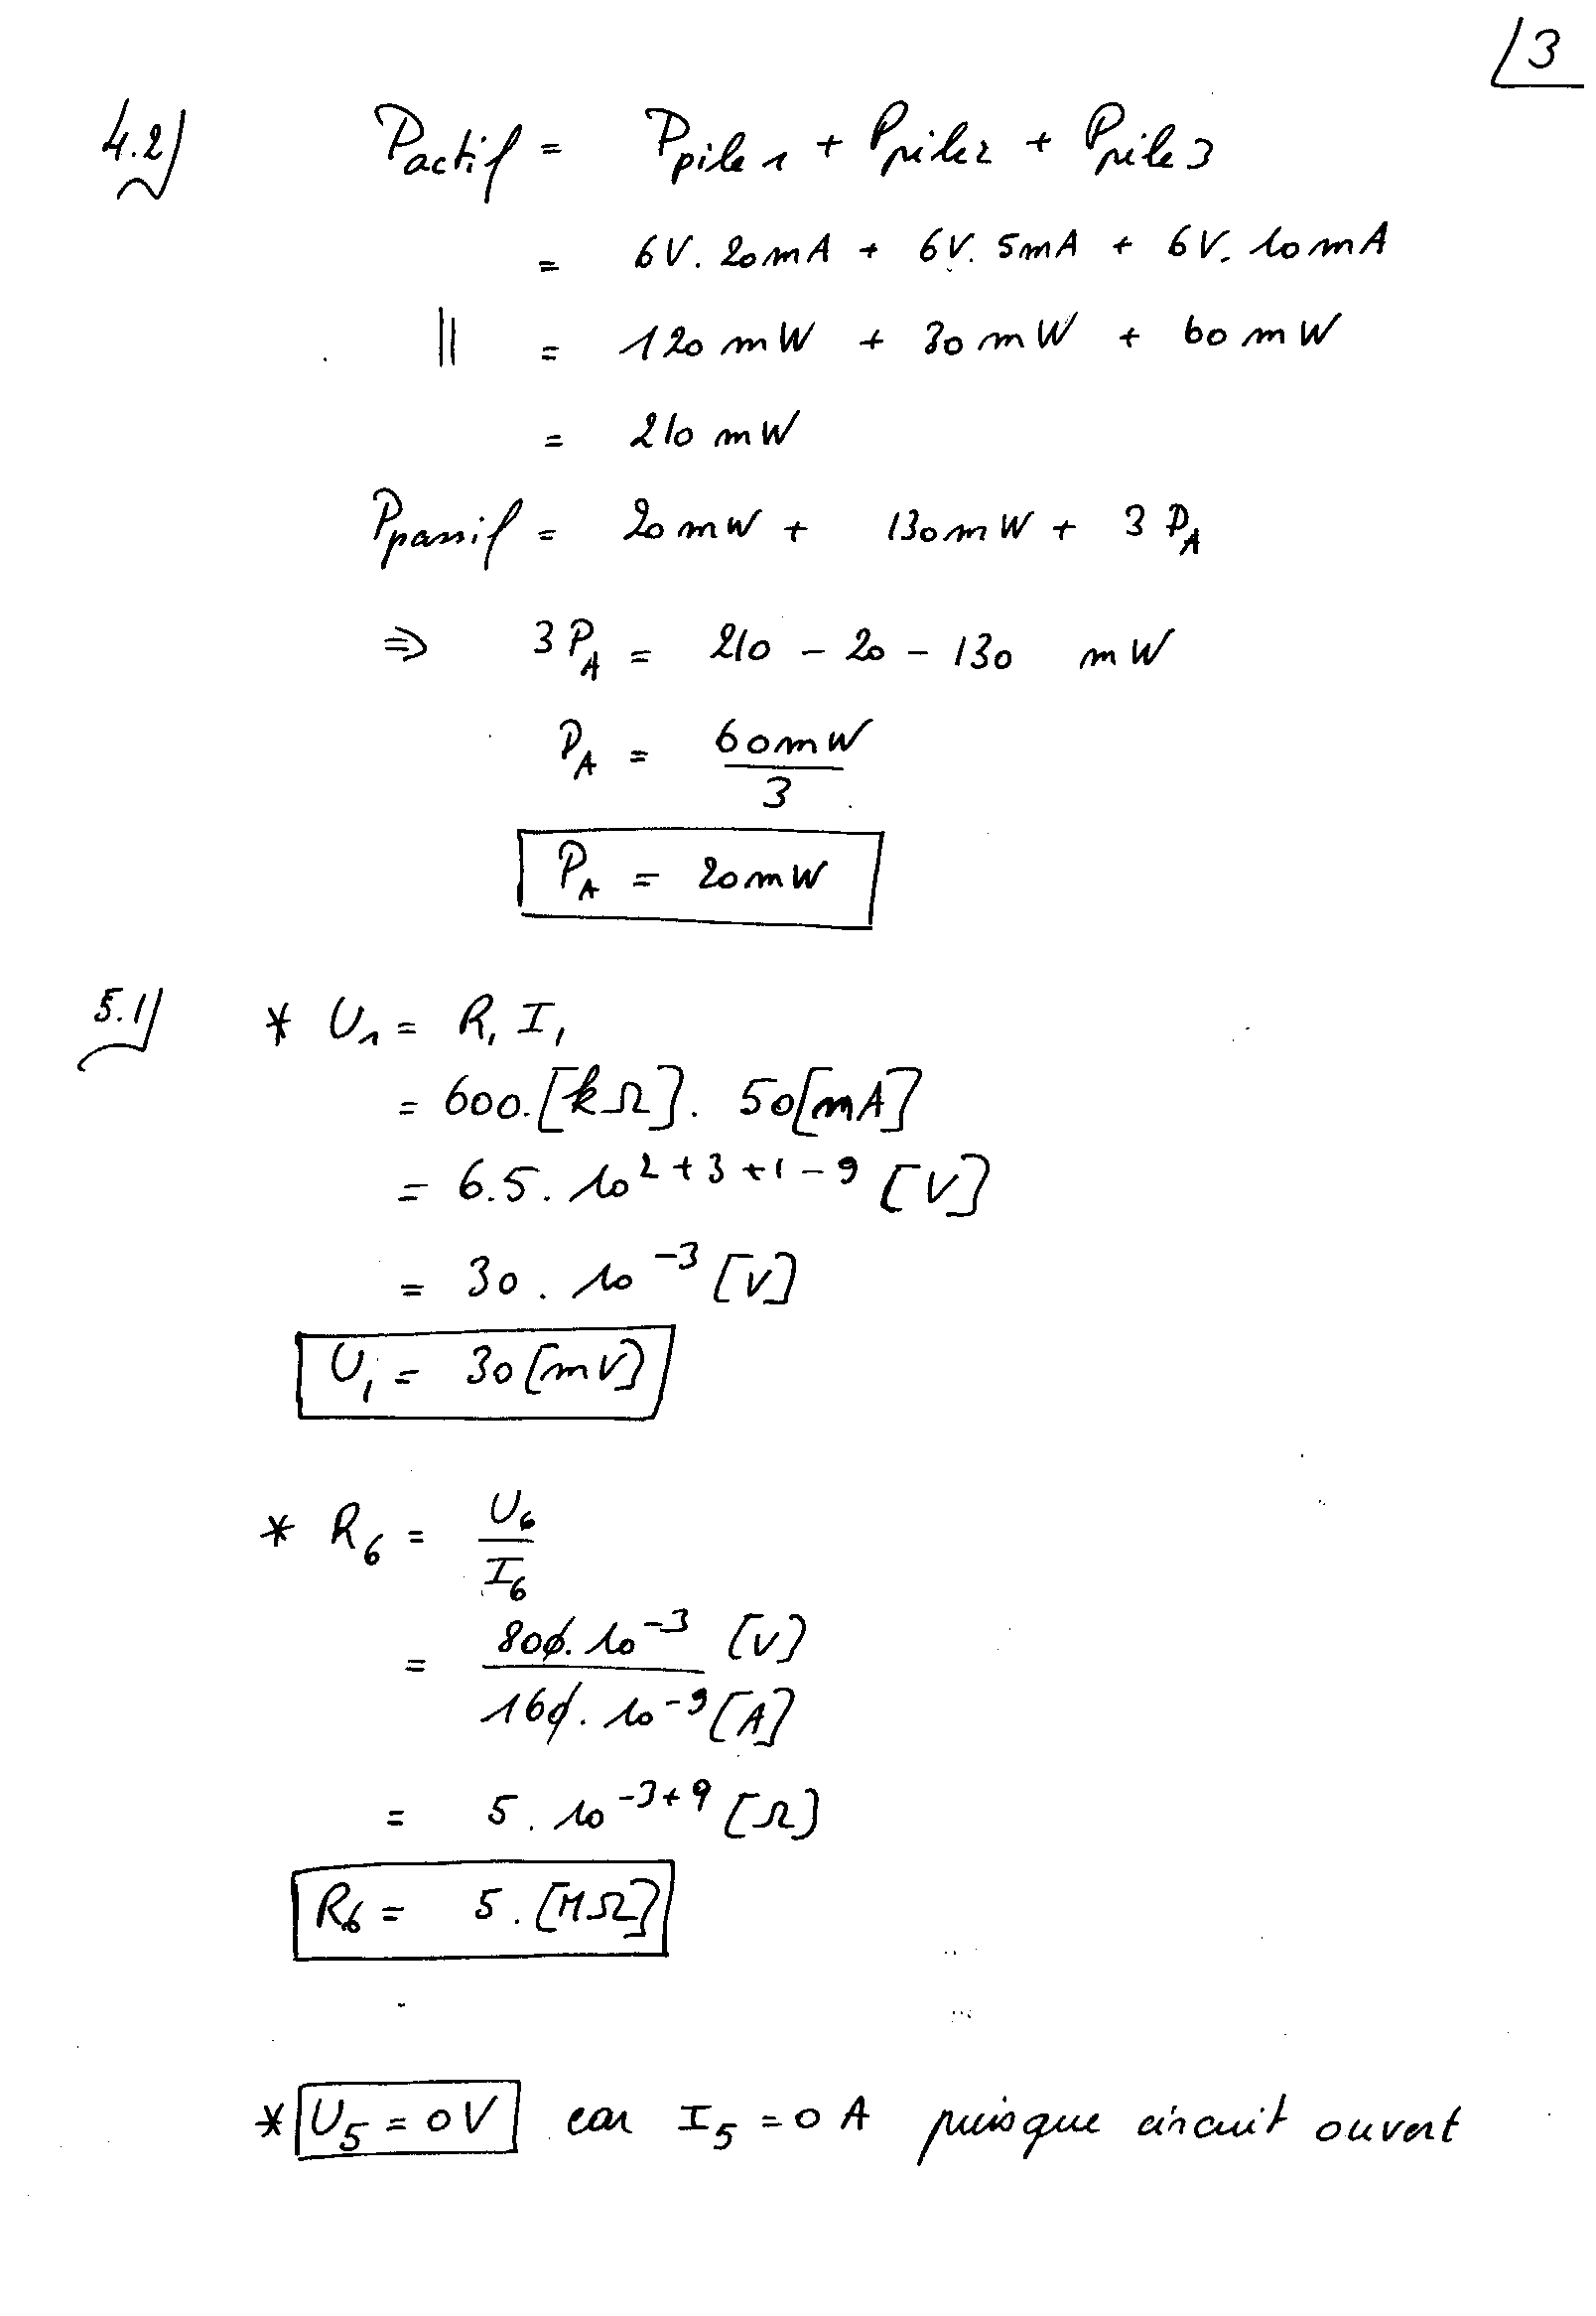 3
4.2) Pactif = Ppile1 + Ppile2 + Ppile3
= 6V. 20mA + 6V. 5mA + 6V. 10mA
|| = 120mW + 30mW + 60mW
= 210mW
Ppassif = 20mW + 130mW + 3 PA
⇒ 3 PA = 210 - 20 - 130 mW
PA = 60mW / 3
PA = 20mW
5.1) * U1 = R1 I1
= 600.[kΩ]. 50[mA]
= 6.5. 10^2+3+1-9 [V]
= 30. 10^-3 [V]
U1 = 30[mV]
* R6 = U6 / I6
= 800. 10^-3 [V] / 160. 10^-9 [A]
= 5. 10^-3+9 [Ω]
R6 = 5. [MΩ]
* U5 = 0V car I5 = 0 A puisque circuit ouvert